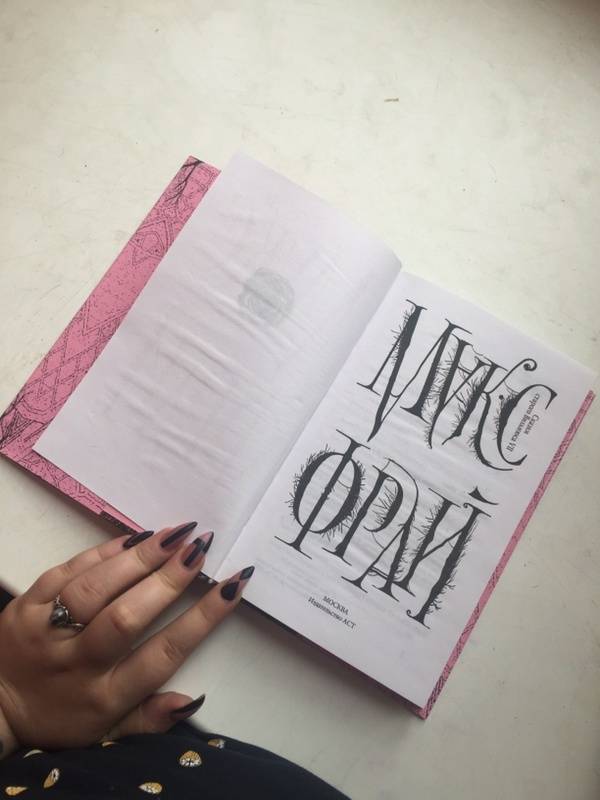 МАКС
Сказки
старого Вильнюса VII
ФРАЙ
МОСКВА
Издательство АСТ